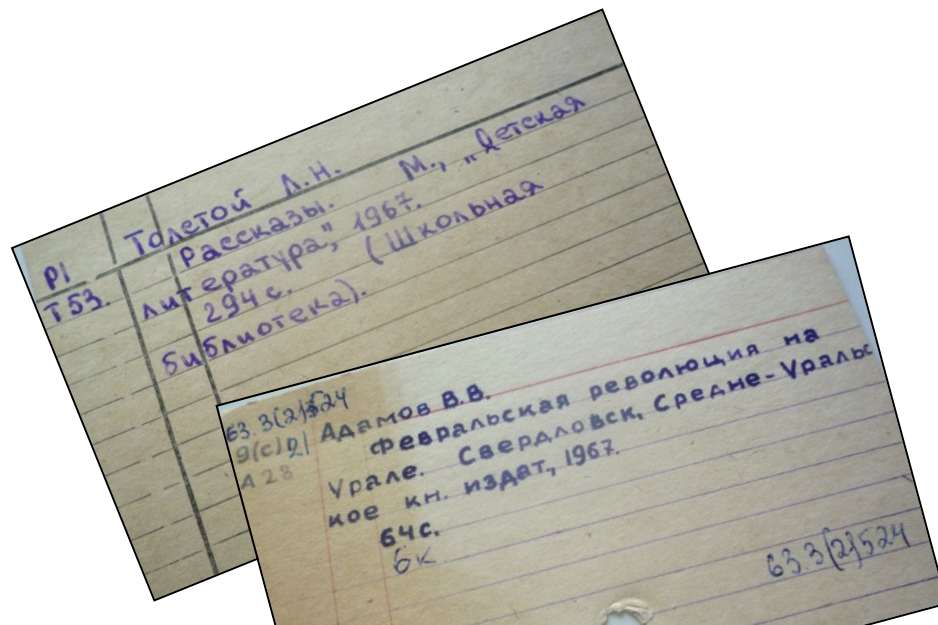 Р1
Т53.
Толстой Л.Н.
Рассказы. М., „Детская
литература", 1967.
294 с. (Школьная
библиотека).
63.3(2)524
9(с)21
А 28
Адамов В.В.
Февральская революция на
Урале. Свердловск, Средне-Уральс
кое кн. издат, 1967.
64с.
6к
63.3(2)524